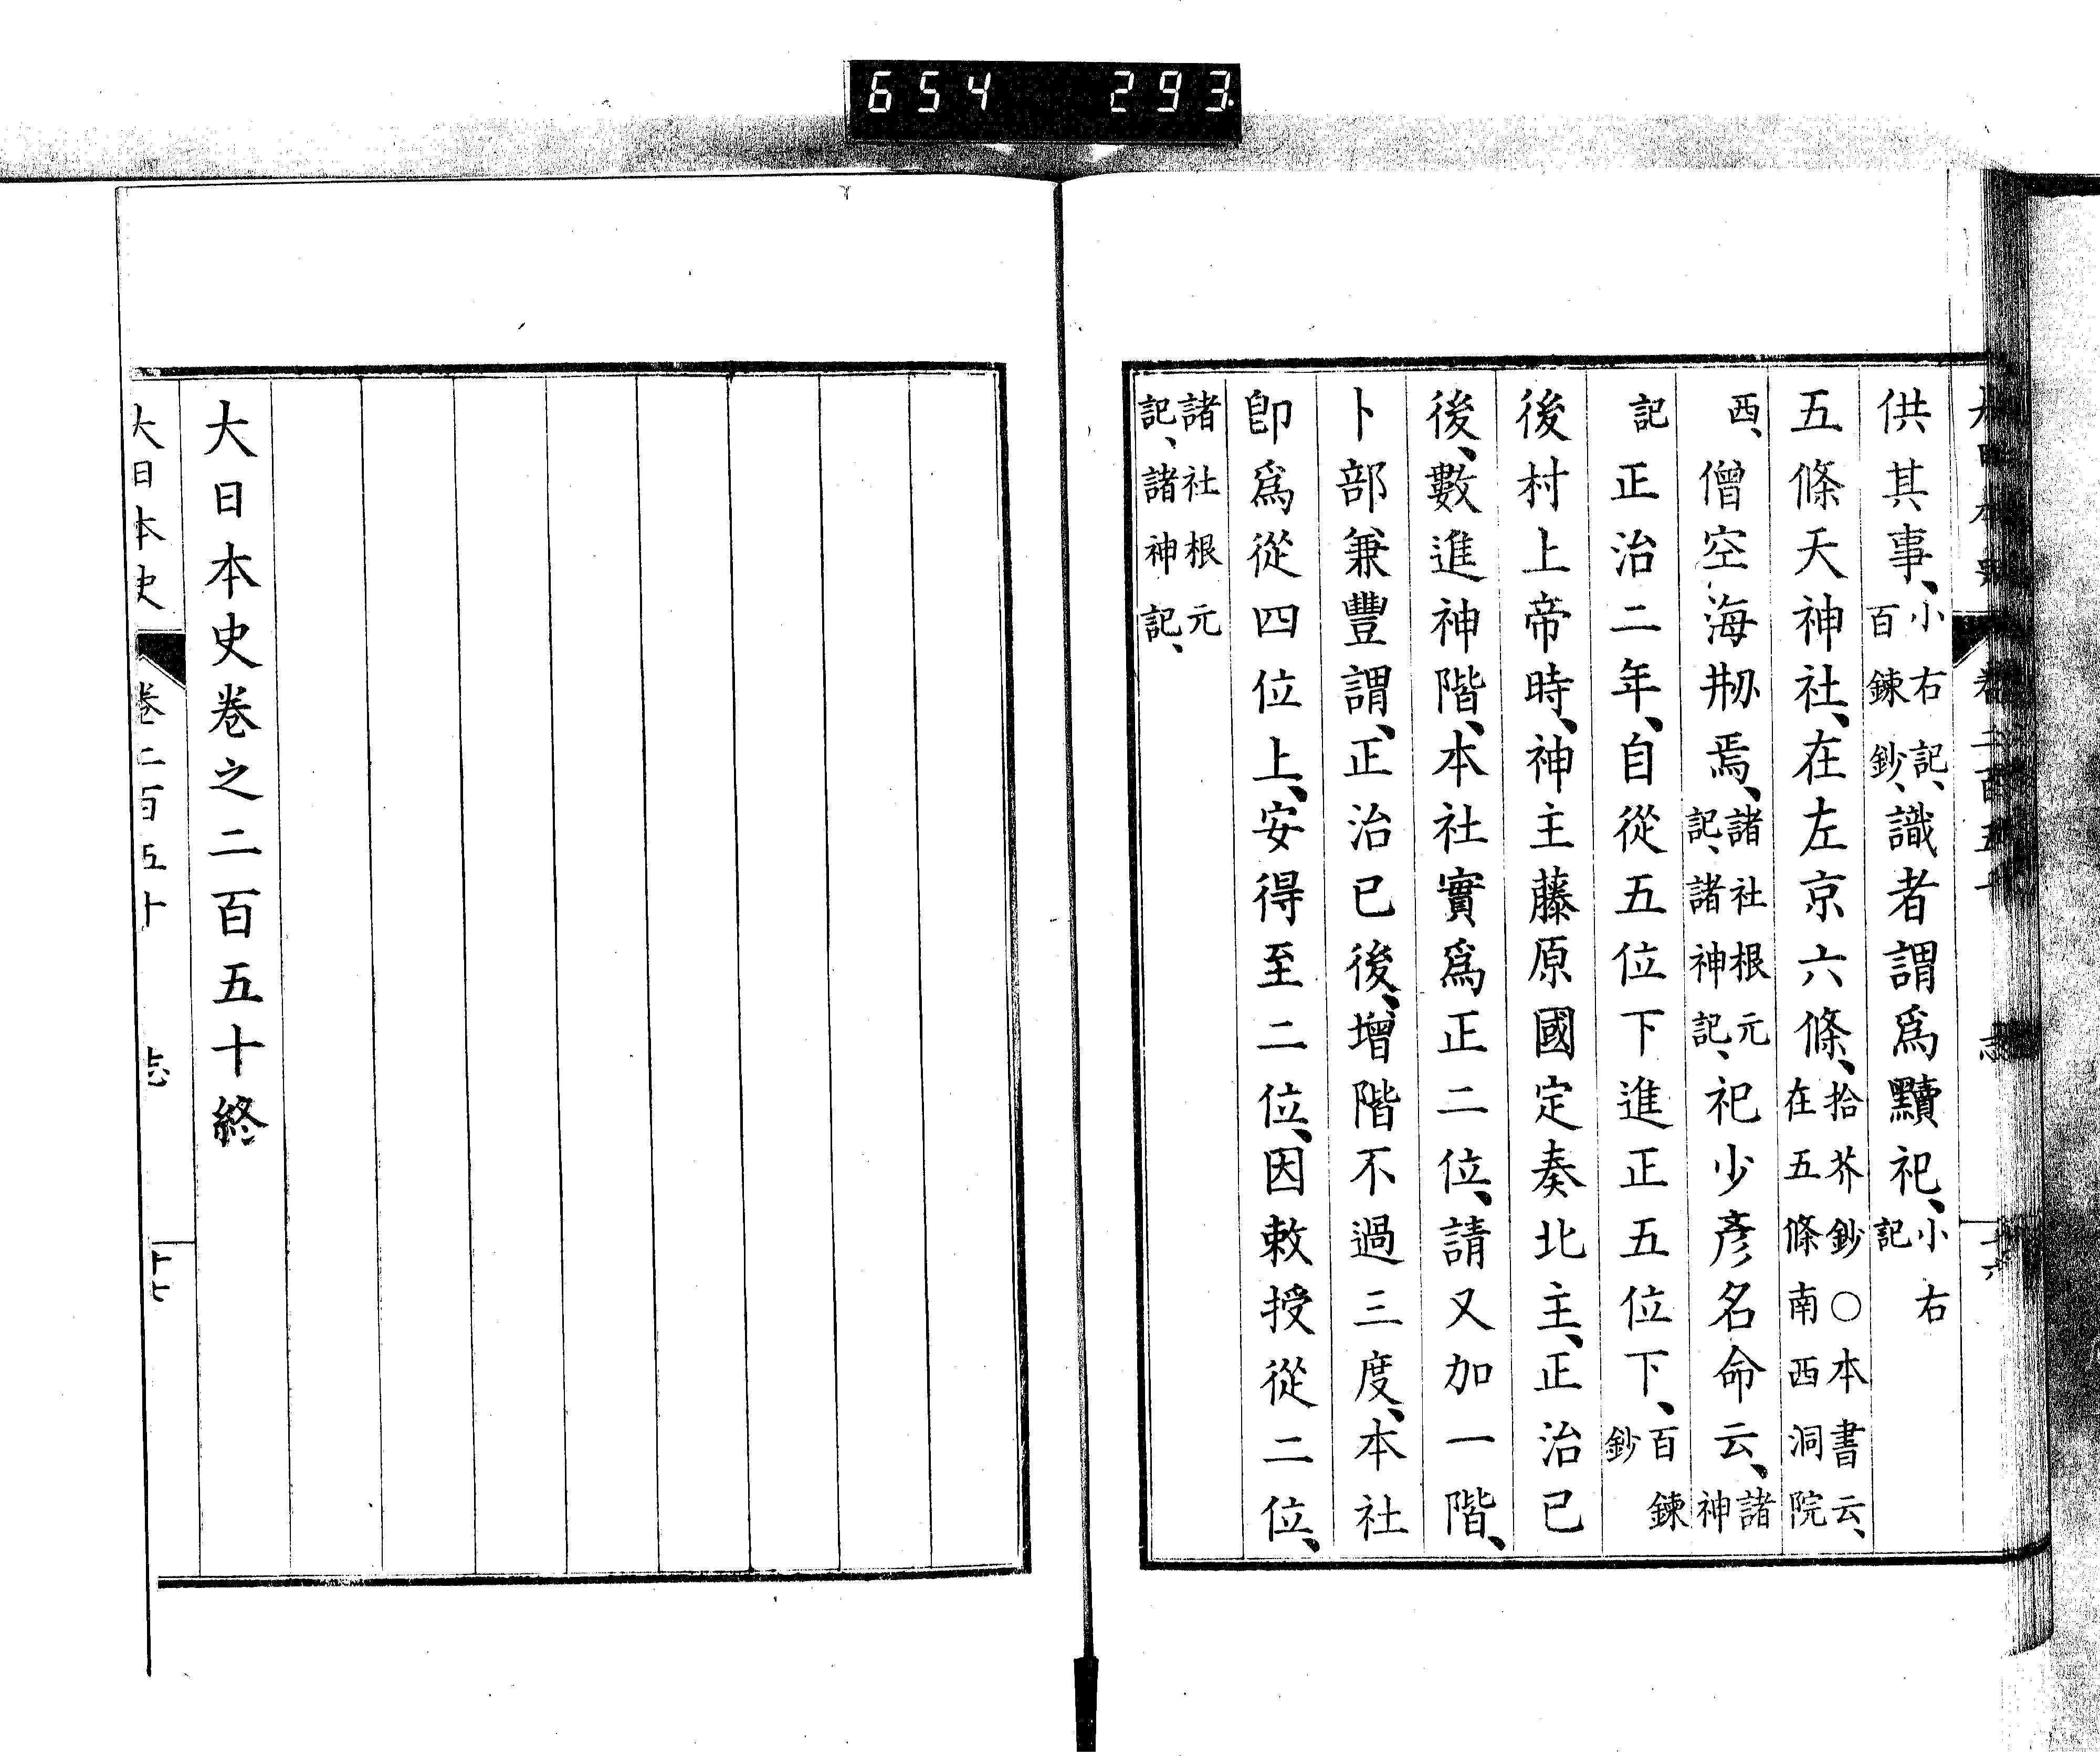 654 293
供其事、小右記、百鍊鈔、識者謂爲黷祀、小右記
五條天神社、在左京六條、拾芥鈔○本書云、在五條南西洞院
西、僧空海刱焉、諸社根元記、諸神記、祀少彥名命云、諸神
記正治二年、自從五位下進正五位下、百鍊鈔
後村上帝時、神主藤原國定奏北主、正治已
後、數進神階、本社實爲正二位、請又加一階、
卜部兼豐謂、正治已後、增階不過三度、本社
卽爲從四位上、安得至二位、因敕授從二位、
諸社根元記、諸神記、
大日本史卷之二百五十終
大日本史 卷二百五十 志 十七